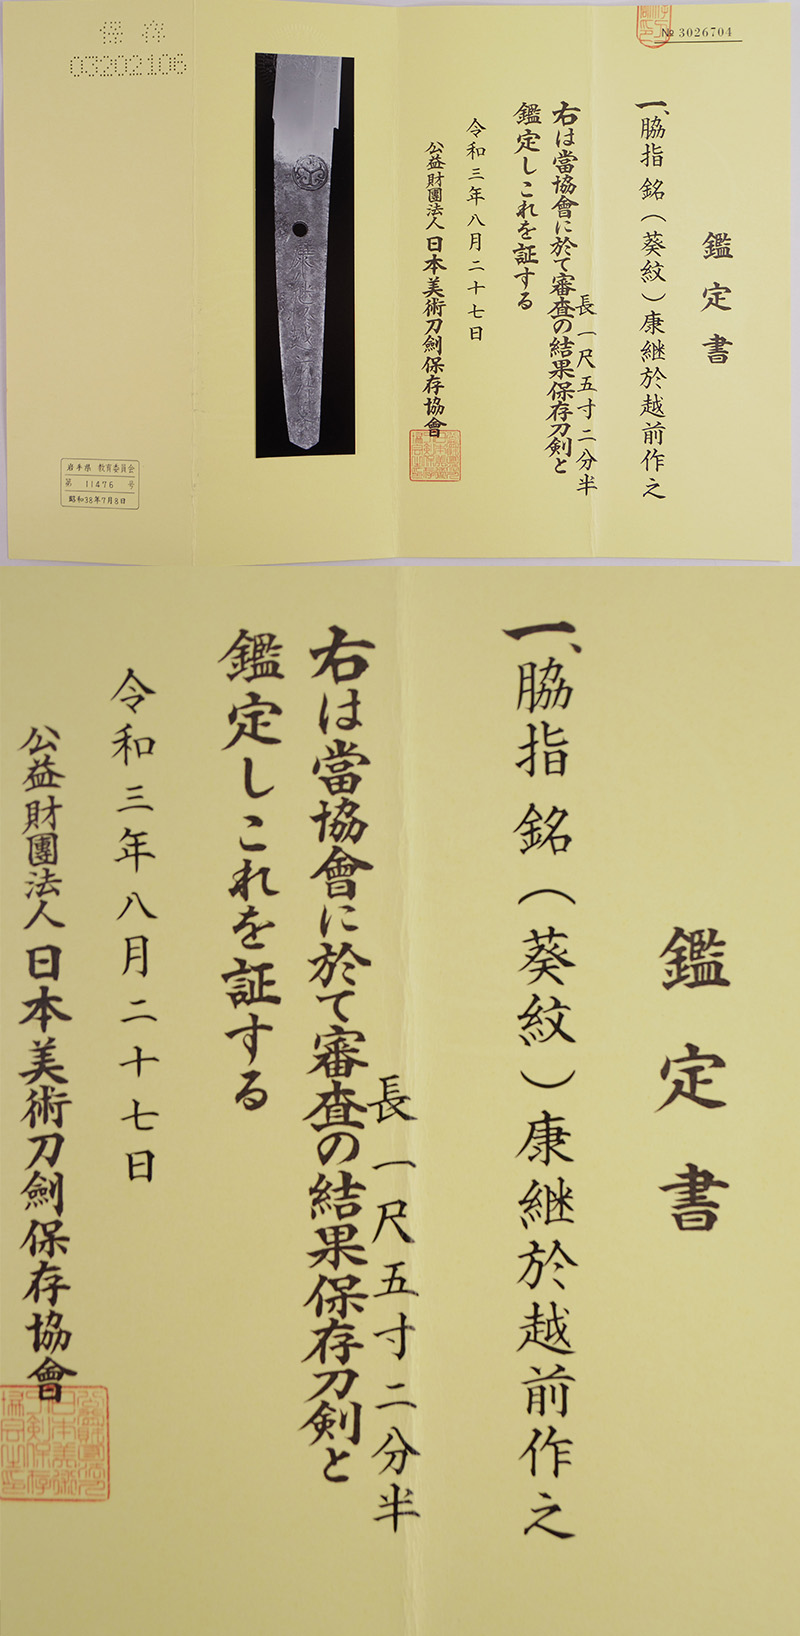 № 3026704
鑑定書
一、脇指 銘(葵紋)康継於越前作之
長一尺五寸二分半
右は當協會に於て審査の結果保存刀剣と
鑑定しこれを証する
令和三年八月二十七日
公益財團法人日本美術刀劍保存協會
保存
03202106
岩手県 教育委員会
第 11476 号
昭和38年7月8日
鑑定書
一、脇指 銘(葵紋)康継於越前作之
長一尺五寸二分半
右は當協會に於て審査の結果保存刀剣と
鑑定しこれを証する
令和三年八月二十七日
公益財團法人日本美術刀劍保存協會